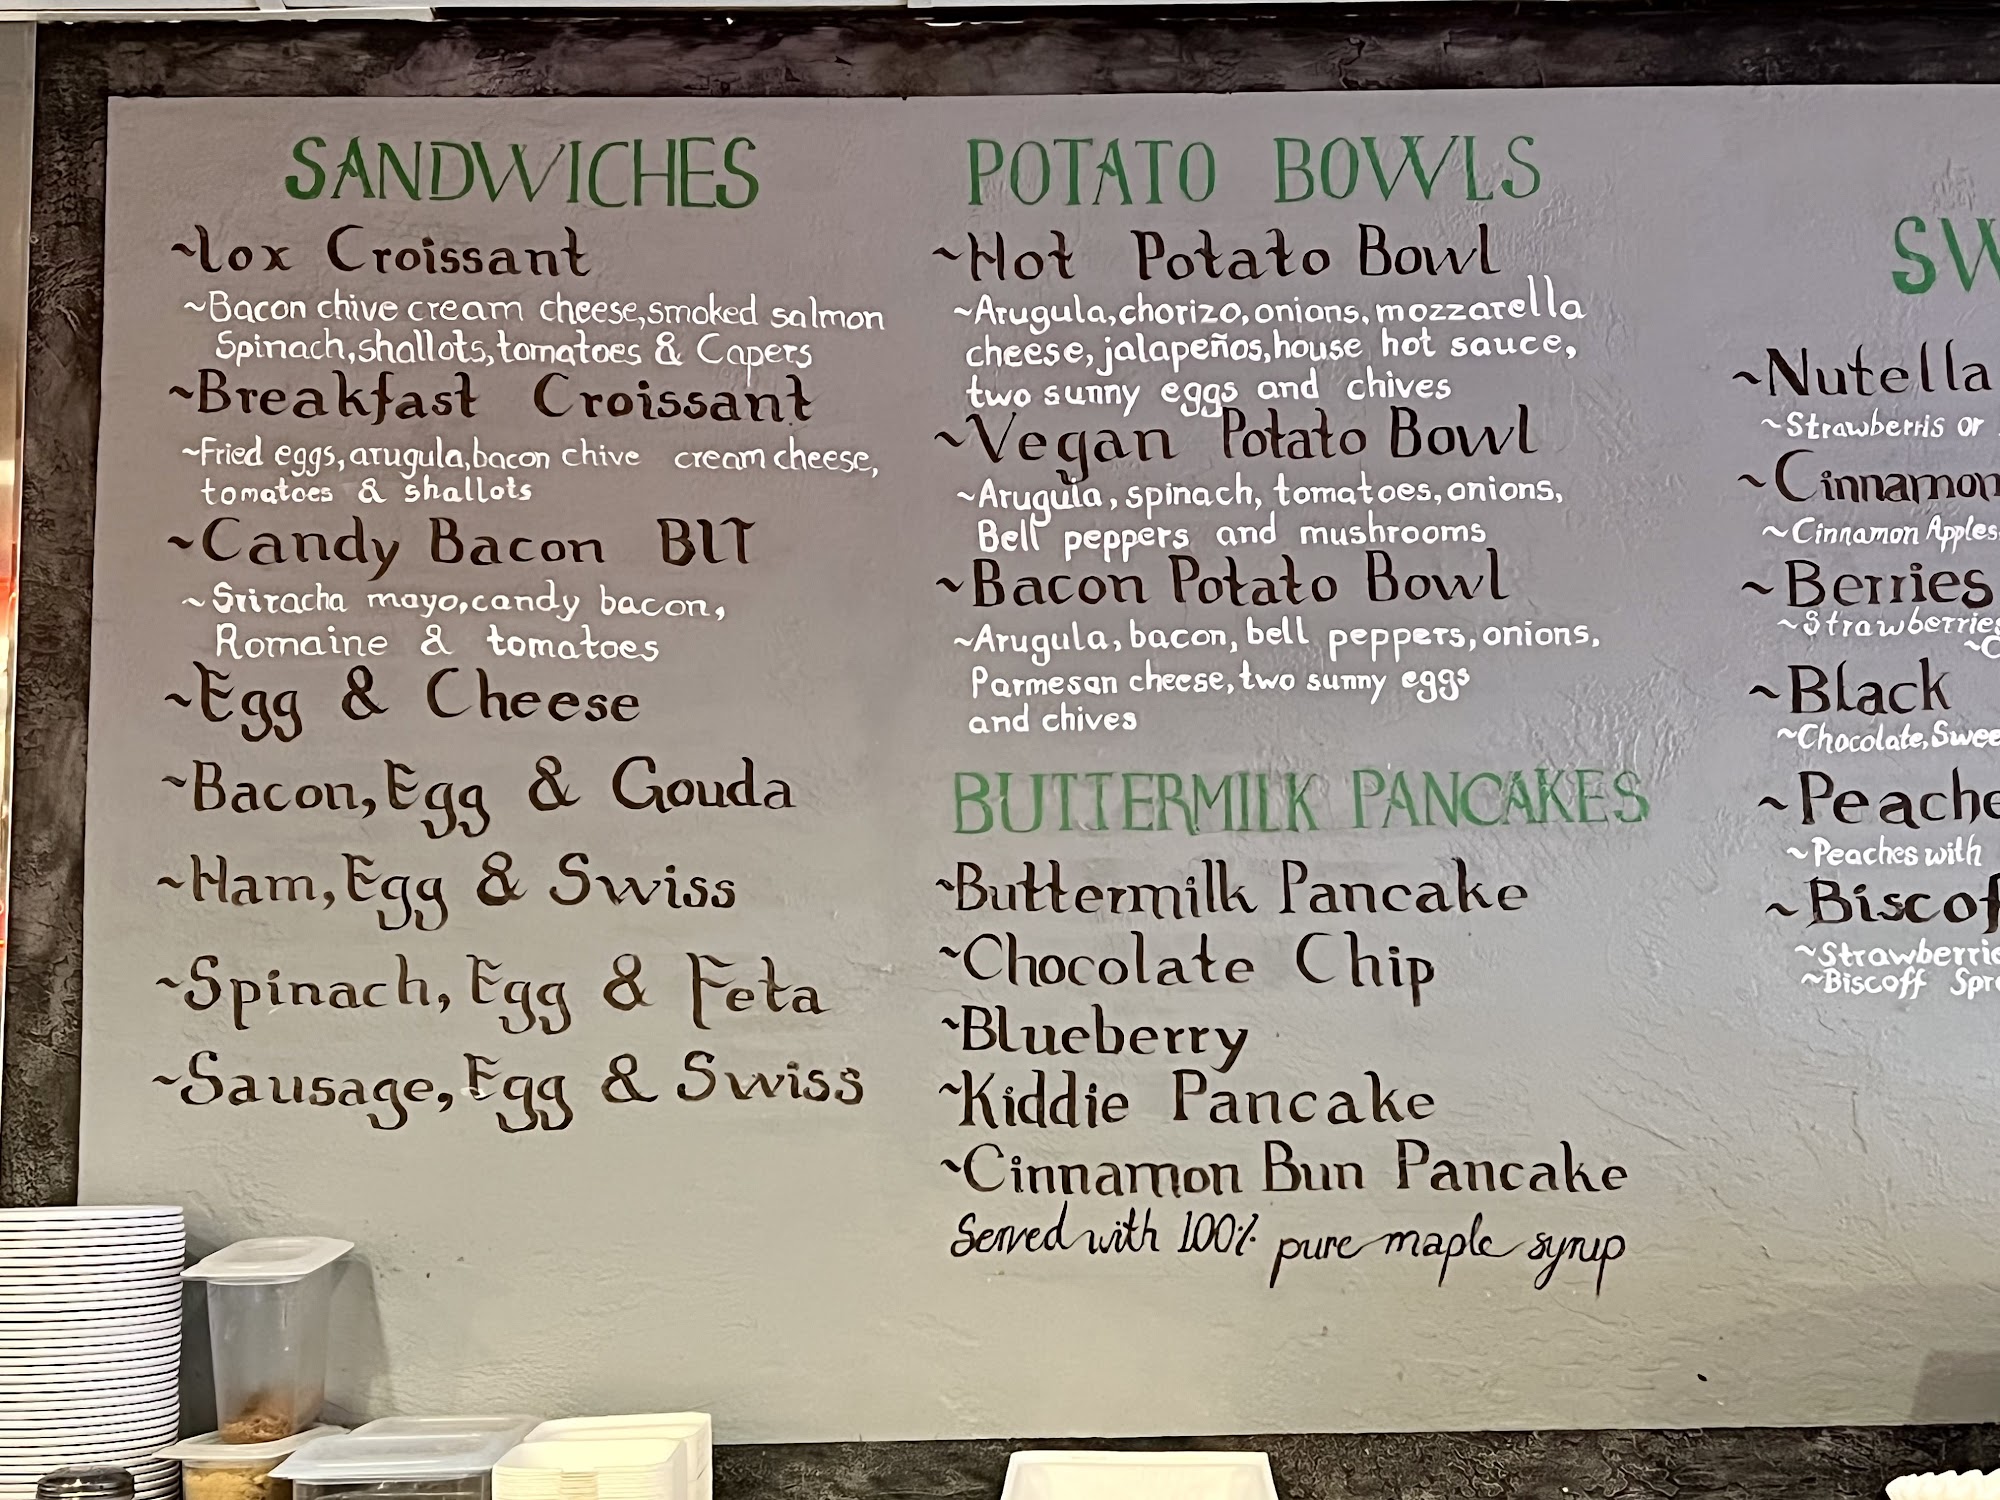 SANDWICHES
~lox Croissant
~Bacon chive cream cheese,smoked salmon
Spinach,shallots,tomatoes & Capers
~Breakfast Croissant
~Fried eggs,arugula,bacon chive cream cheese,
tomatoes & shallots
~Candy Bacon BLT
~Sriracha mayo,candy bacon,
Romaine & tomatoes
~Egg & Cheese
~Bacon,Egg & Gouda
~Ham,Egg & Swiss
~Spinach,Egg & Feta
~Sausage,Egg & Swiss
POTATO BOWLS
~Hot Potato Bowl
~Arugula,chorizo,onions,mozzarella
cheese,jalapeños,house hot sauce,
two sunny eggs and chives
~Vegan Potato Bowl
~Arugula,spinach,tomatoes,onions,
Bell peppers and mushrooms
~Bacon Potato Bowl
~Arugula,bacon,bell peppers,onions.
Parmesan cheese,two sunny eggs
and chives
BUTTERMILK PANCAKES
~Buttermilk Pancake
~Chocolate Chip
~Blueberry
~Kiddie Pancake
~Cinnamon Bun Pancake
Served with 100% pure maple syrup
SW
~Nutella
~Strawberris or
~Cinnamon
~Cinnamon Apples
~Berries
~Strawberries
~Black
~Chocolate,Swee
~Peache
~Peaches with
~Biscof
~Strawberrie
~Biscoff Spr